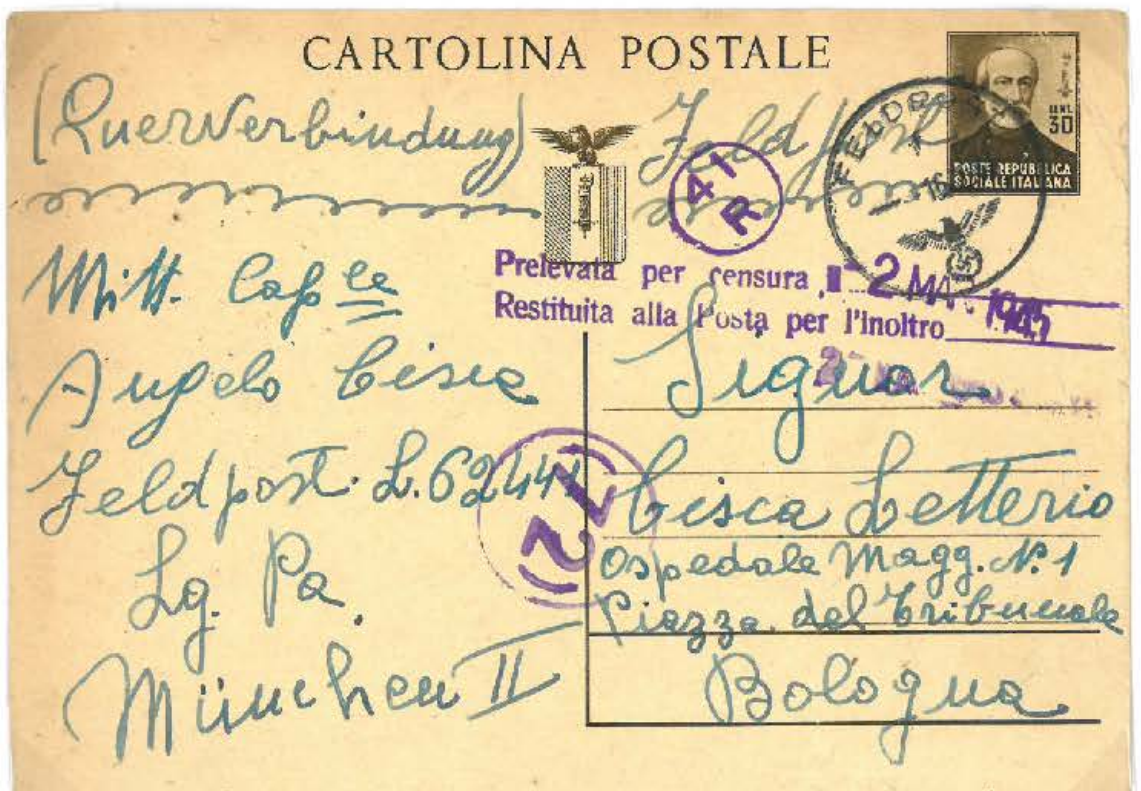 CARTOLINA POSTALE
(Querverbindung) Feldpost
CENT. 30
POSTE REPUBBLICA SOCIALE ITALIANA
FELDPOST
16
41 R
Prelevata per censura il 2 MAR. 1945
Restituita alla Posta per l'inoltro
Mitt. Cap le
Angelo Cisca
Feldpost. L.62441
Lg. Pa.
München II
(12)
Signor
Cisca Letterio
Ospedale Magg. N. 1
Piazza del Tribunale
Bologna